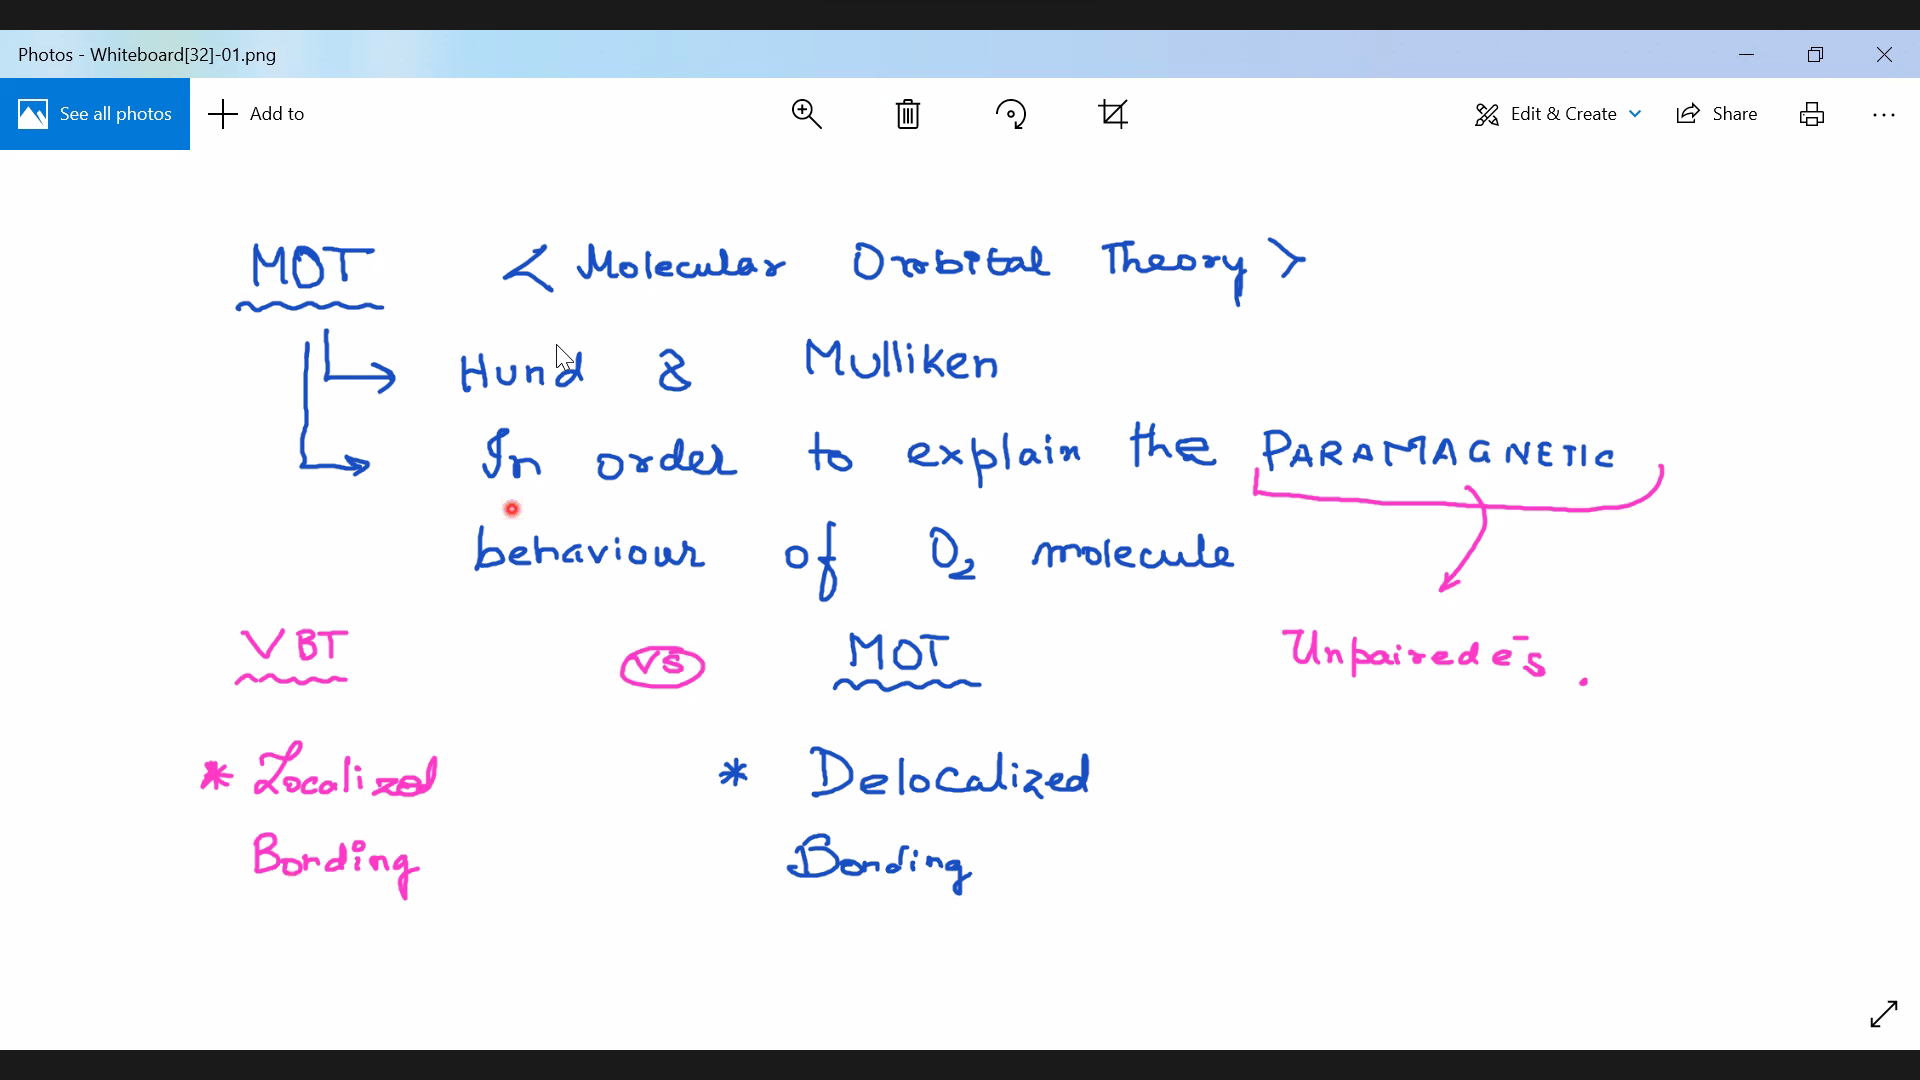 Photos - Whiteboard[32]-01.png
See all photos
Add to
Edit & Create
Share
MOT < Molecular Orbital Theory >
Hund & Mulliken
In order to explain the PARAMAGNETIC
behaviour of O₂ molecule
VBT VS MOT
Unpaired e⁻s .
* Localized * Delocalized
Bonding Bonding